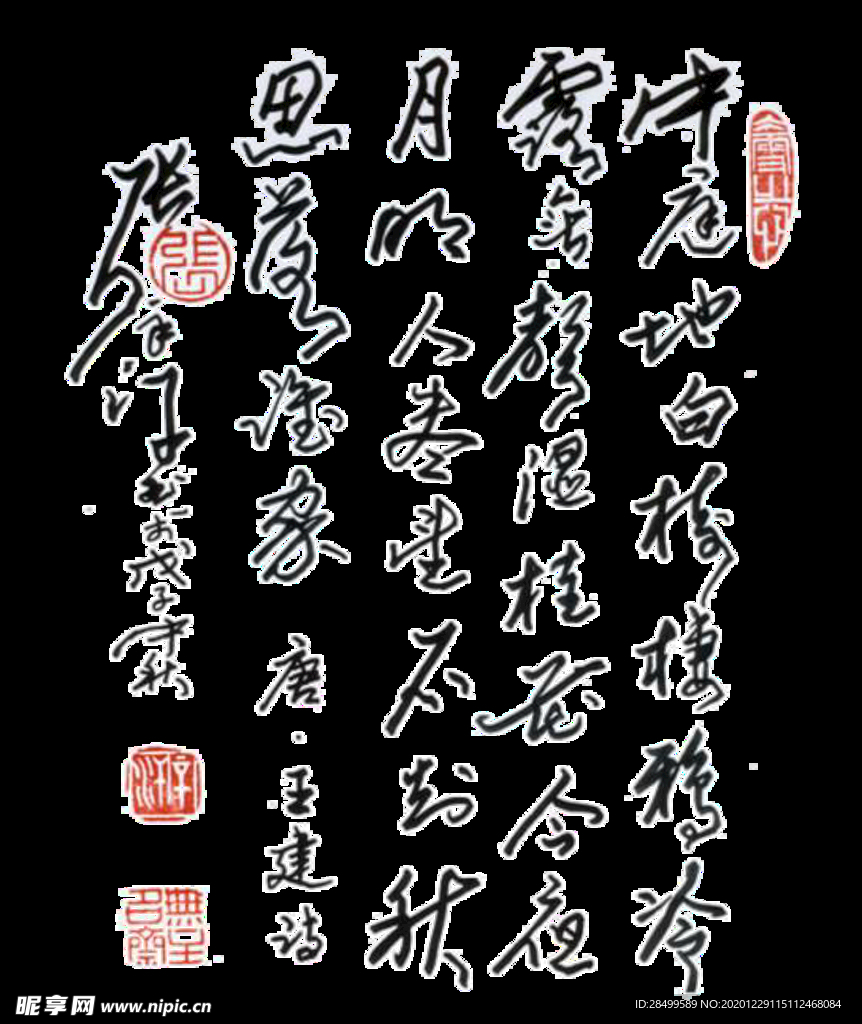 中庭地白樹棲鴉冷
露無聲濕桂花今夜
月明人盡望不知秋
思落誰家 唐·王建詩
张 书於戊子中秋
張
昵享网 www.nipic.cn
ID:28499589 NO:20201229115112468084